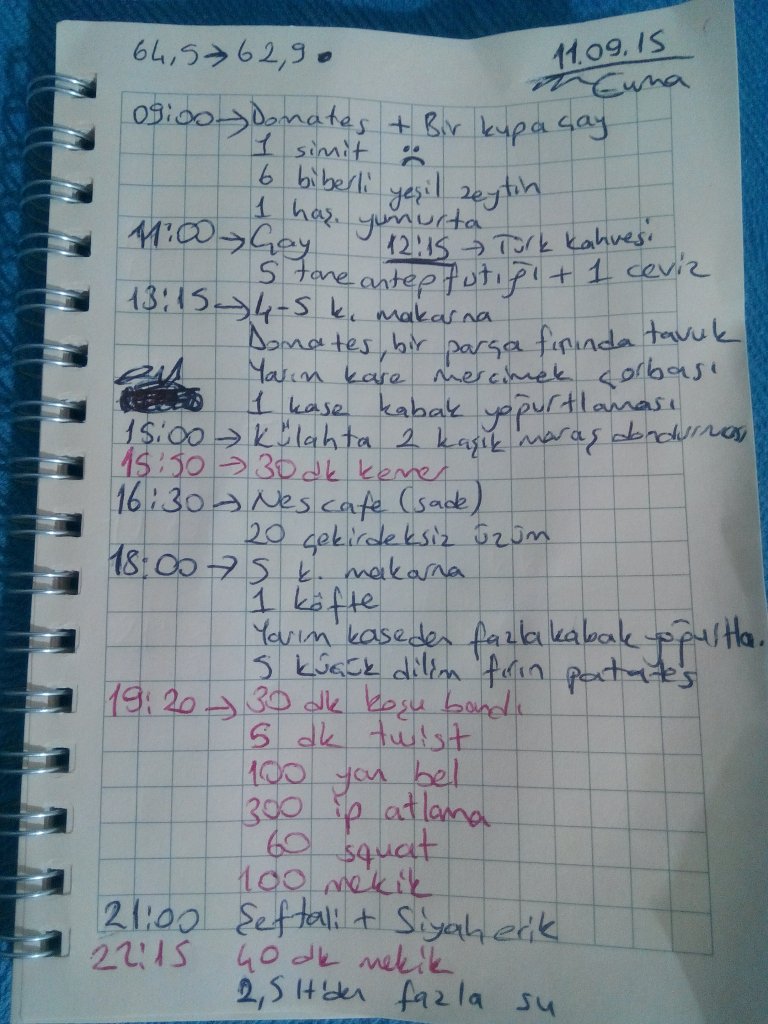 64,5→62,9.
11.09.15
Cuma
09:00→Domates + Bir kupa çay
1 simit ☹
6 biberli yeşil zeytin
1 haş. yumurta
11:00→Çay 12:15→Türk kahvesi
5 tane antep fıstığı + 1 ceviz
13:15→4-5 k. makarna
Domates, bir parça fırında tavuk
Yarım kase mercimek çorbası
1 kase kabak yoğurtlaması
15:00→Külahta 2 kaşık maraş dondurması
15:50→30 dk kemer
16:30→Nescafe (sade)
20 çekirdeksiz üzüm
18:00→5 k. makarna
1 köfte
Yarım kaseden fazla kabak yoğurtla.
5 küçük dilim fırın patates
19:20→30 dk koşu bandı
5 dk twist
100 yan bel
300 ip atlama
60 squat
100 mekik
21:00 Şeftali + Siyah erik
22:15 40 dk mekik
2,5 lt'den fazla su